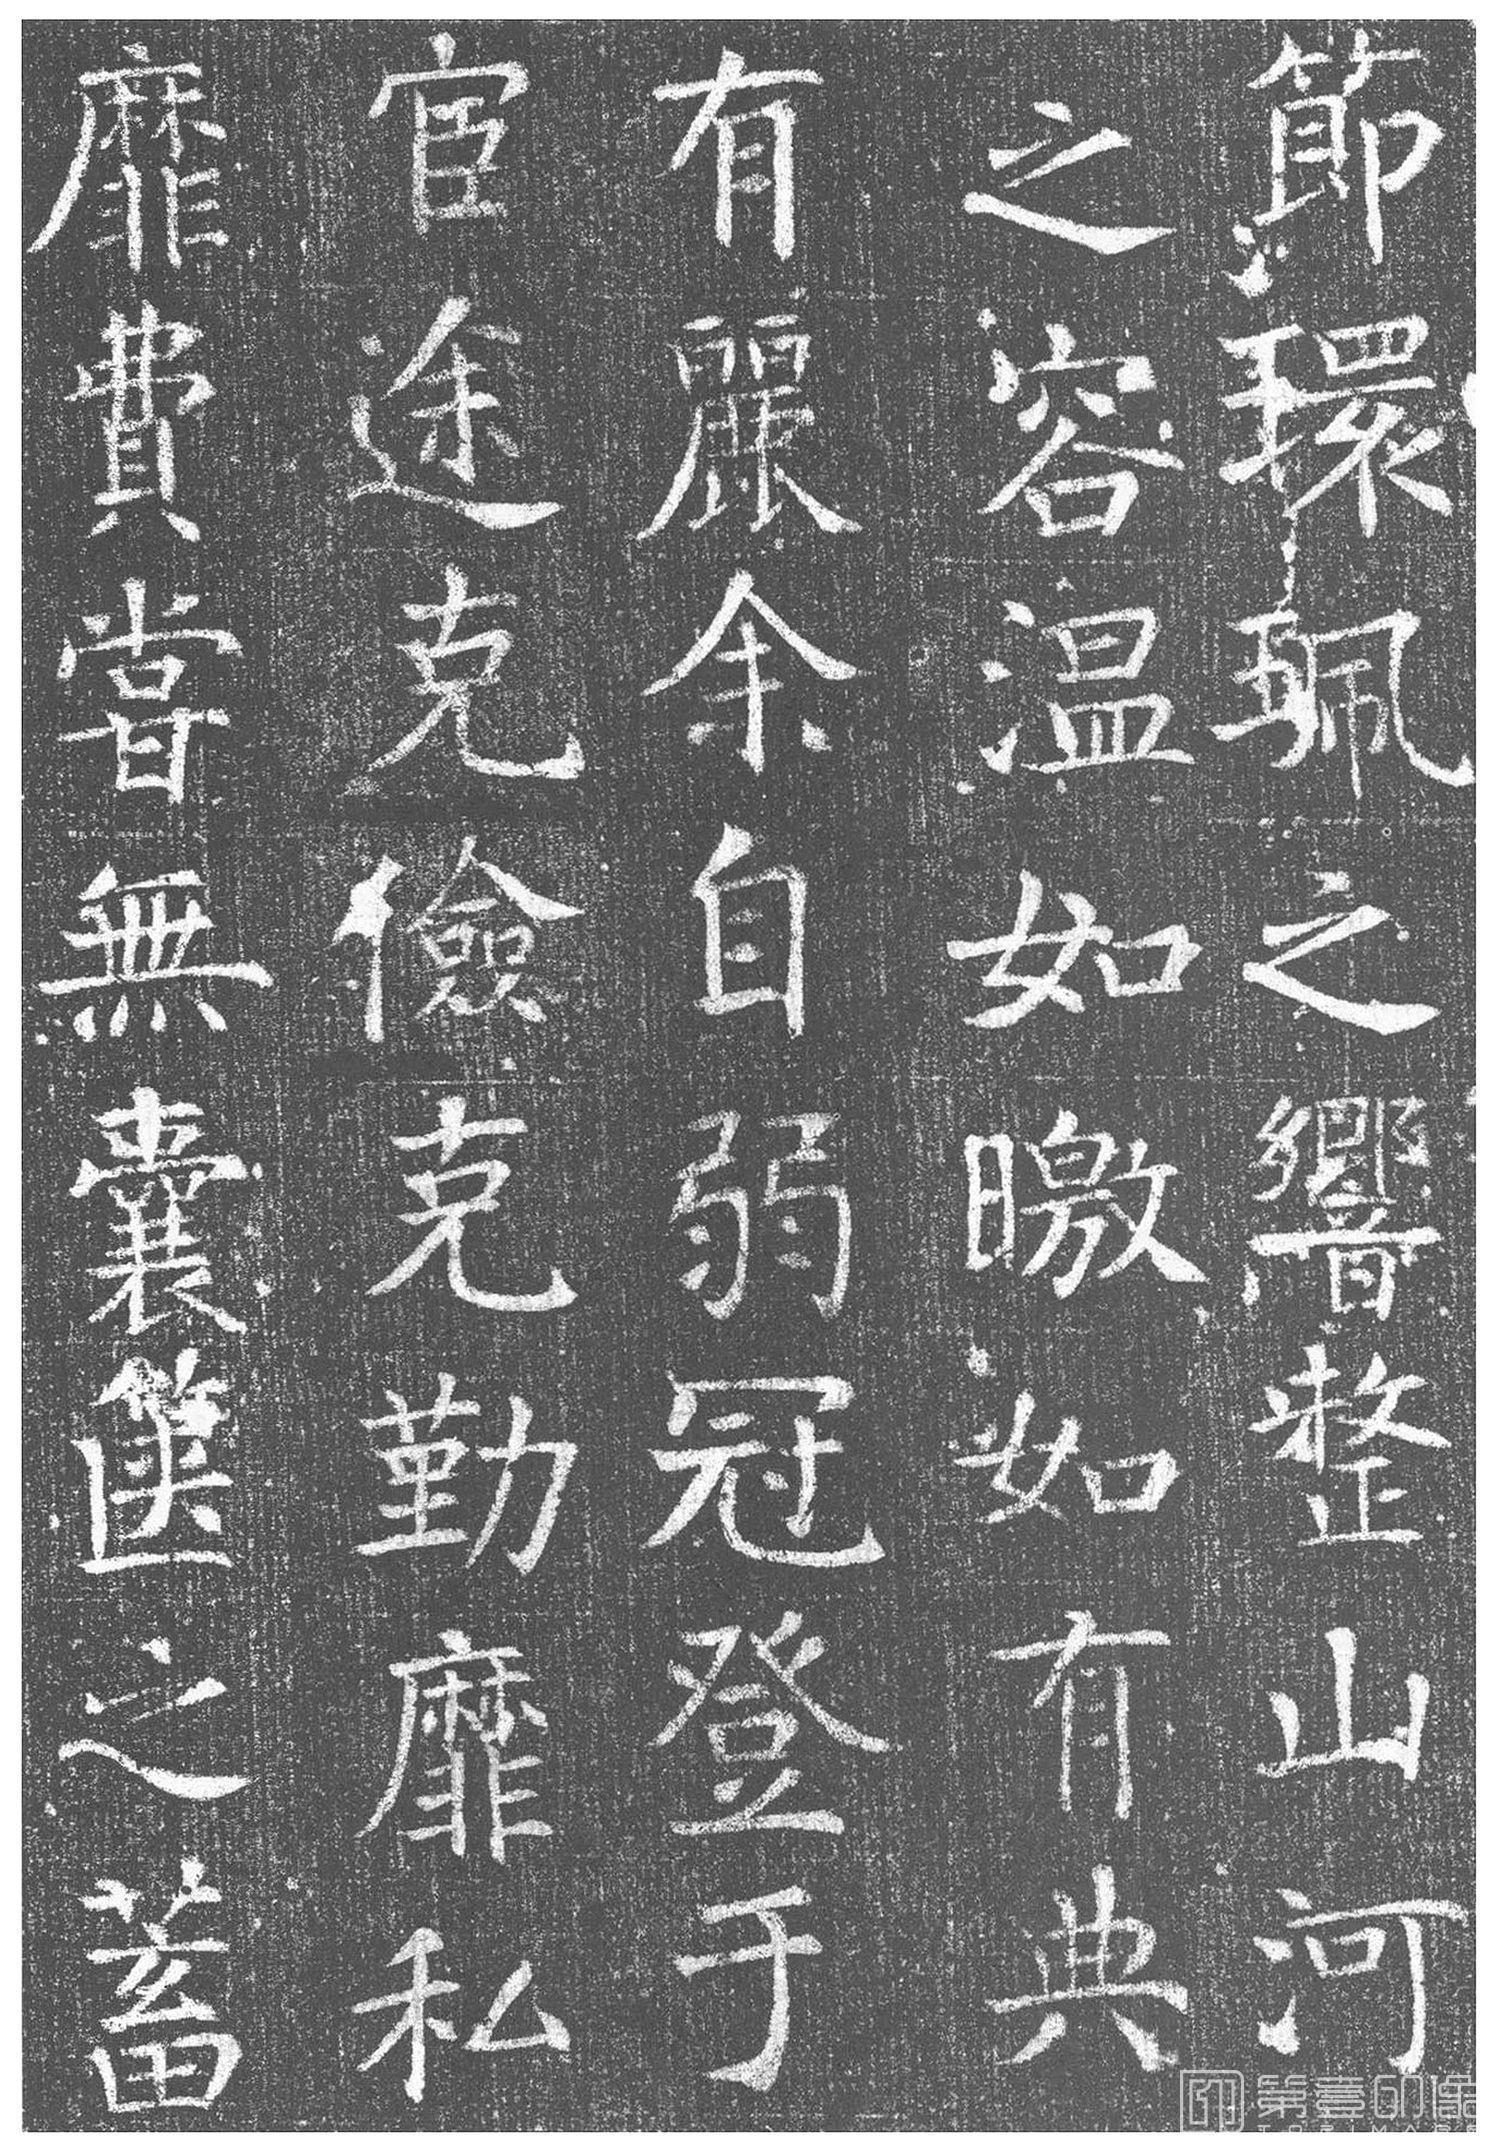 節環珮之響整山河
之容温如曒如有典
有麗余自弱冠登于
宦途克儉克勤靡私
靡費甞無囊篋之蓄
第壹印像